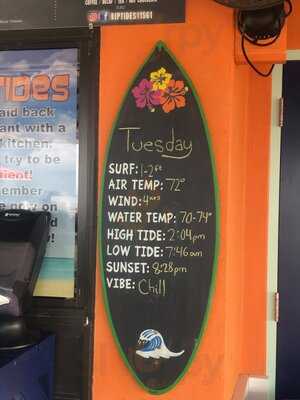 COFFEE / DECAF / TEA / HOT CHOCOLATE
RIPTIDES11561
TIDES
aid back
ant with a
kitchen,
try to be
ient!
ember
Tuesday
SURF: 1-2ft
AIR TEMP: 72°
WIND: 4
WATER TEMP: 70-74°
HIGH TIDE: 2:04pm
LOW TIDE: 7:46am
SUNSET: 8:28pm
VIBE: Chill